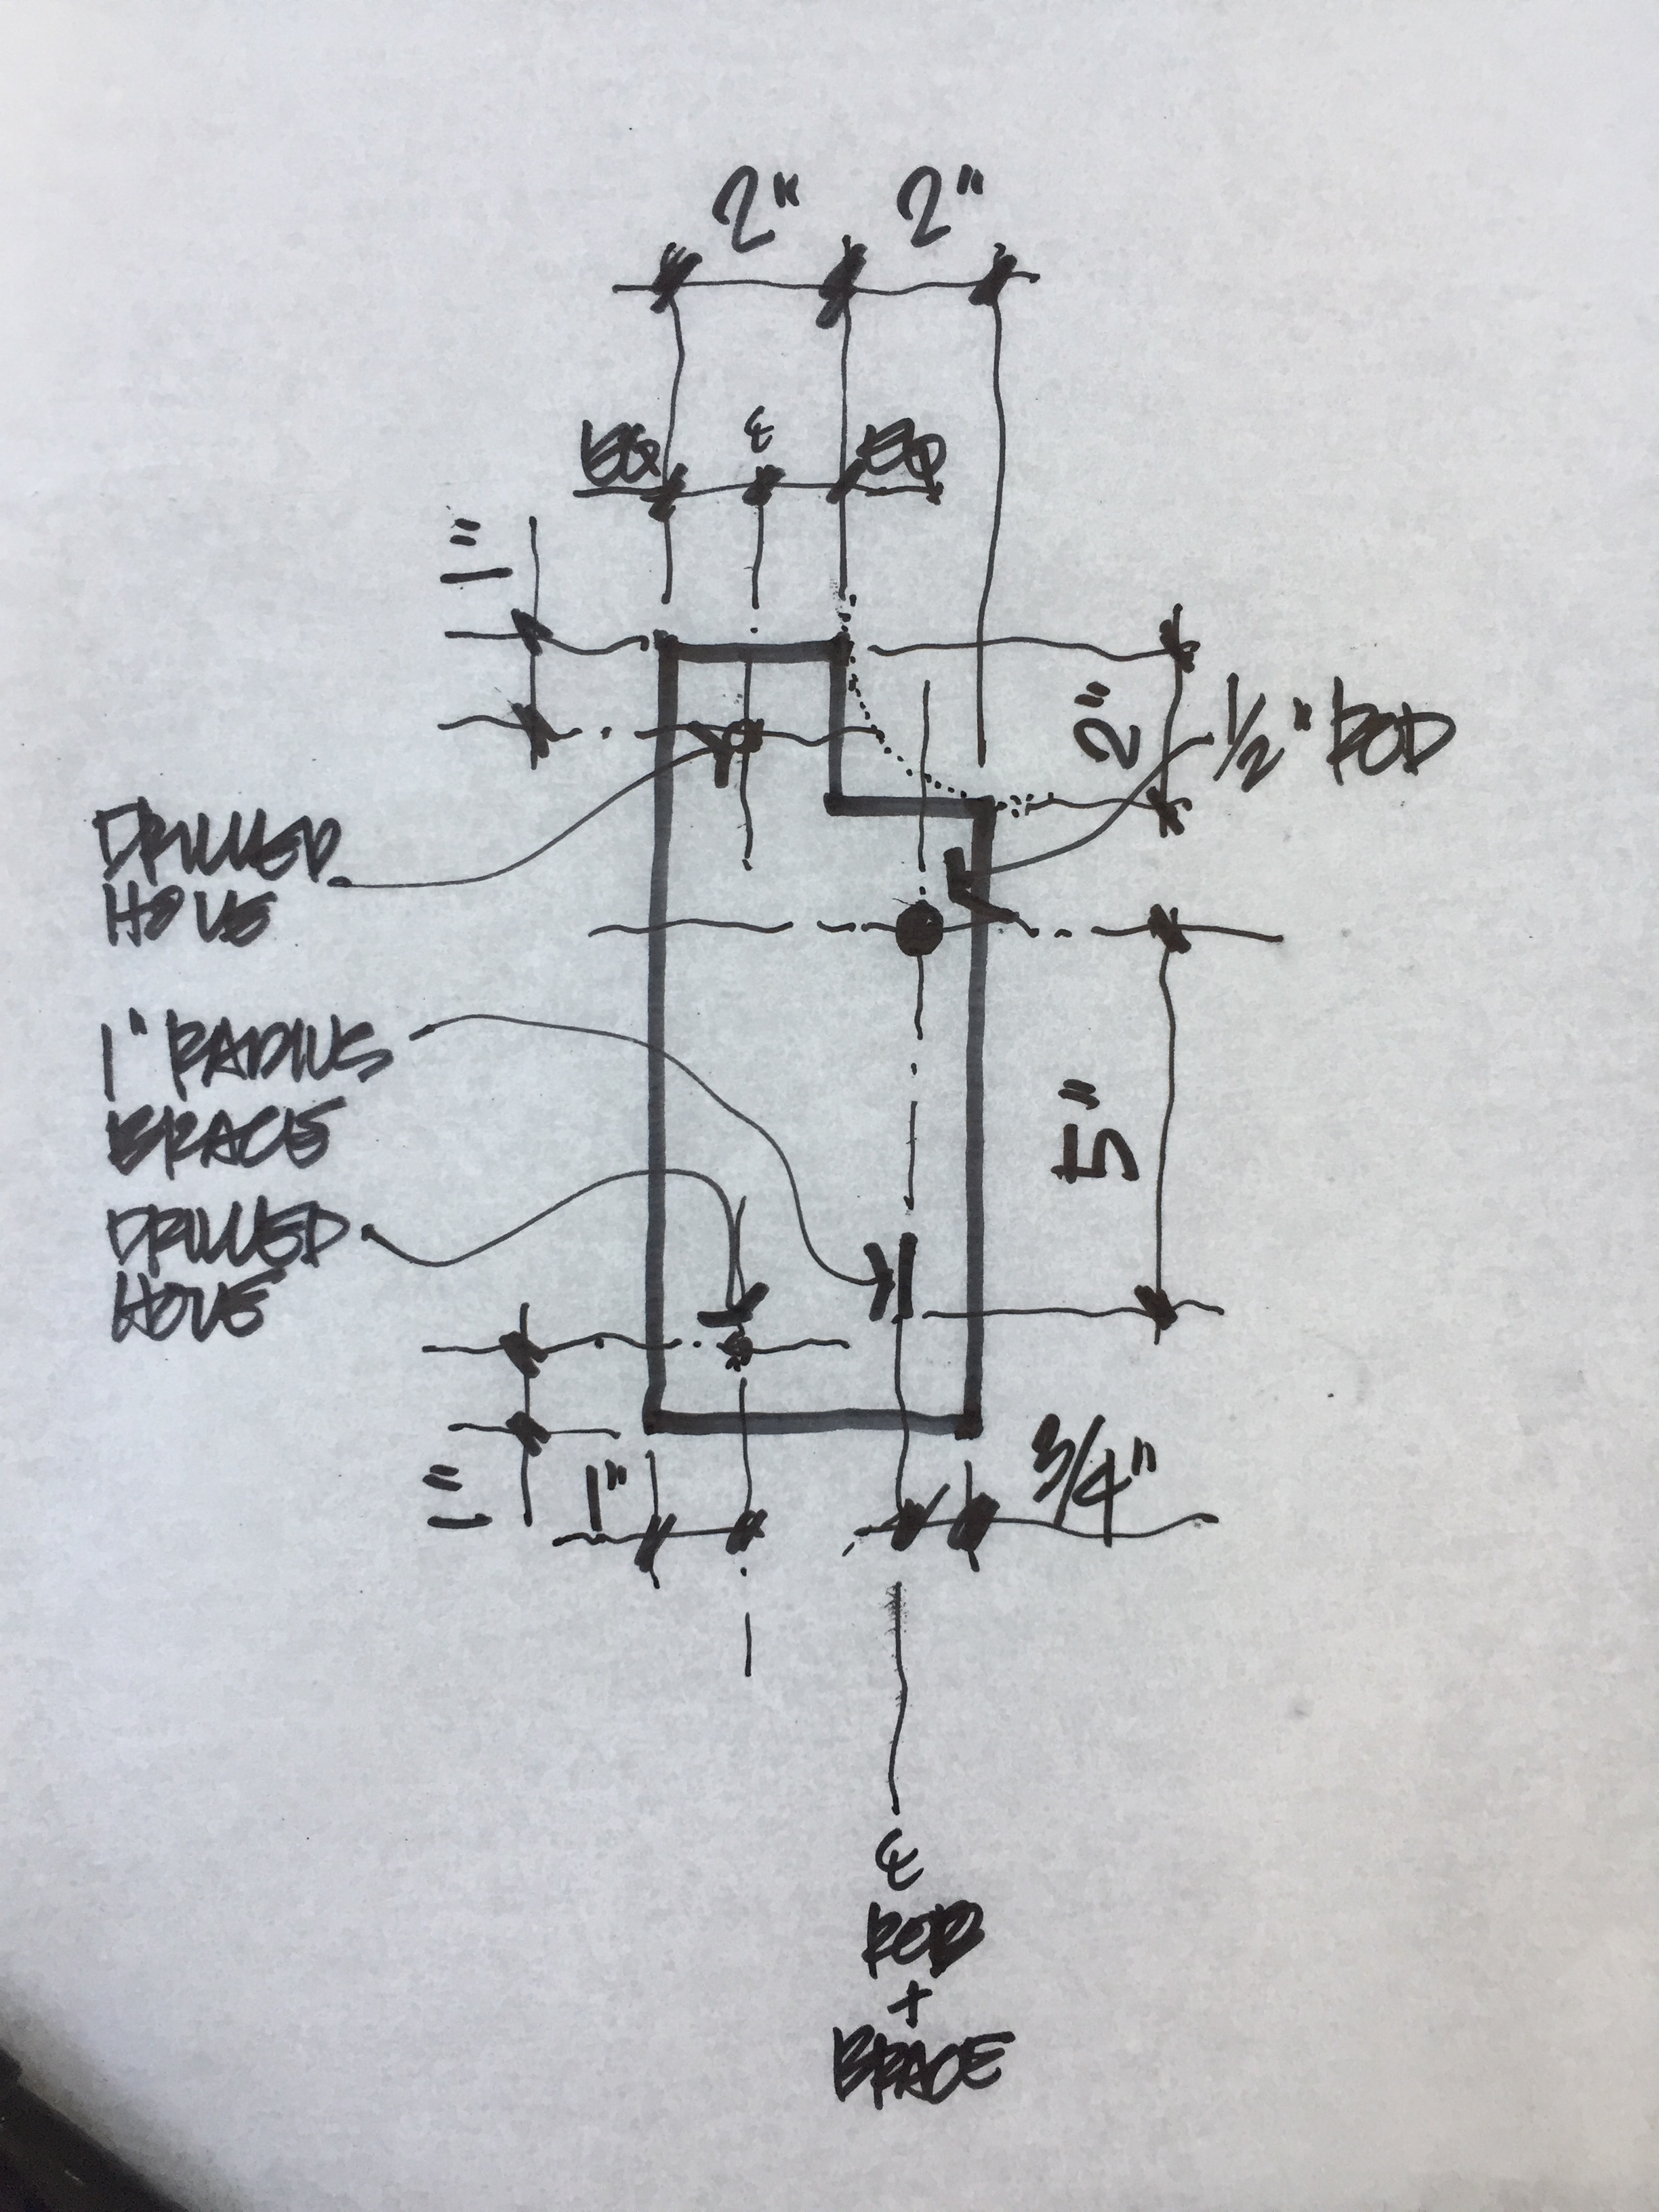 2" 2"
EQ ℄ EQ
1"
2"
1/2" ROD
DRILLED
HOLE
1" RADIUS
BRACE
5"
DRILLED
HOLE
1"
1"
3/4"
℄
ROD
+
BRACE